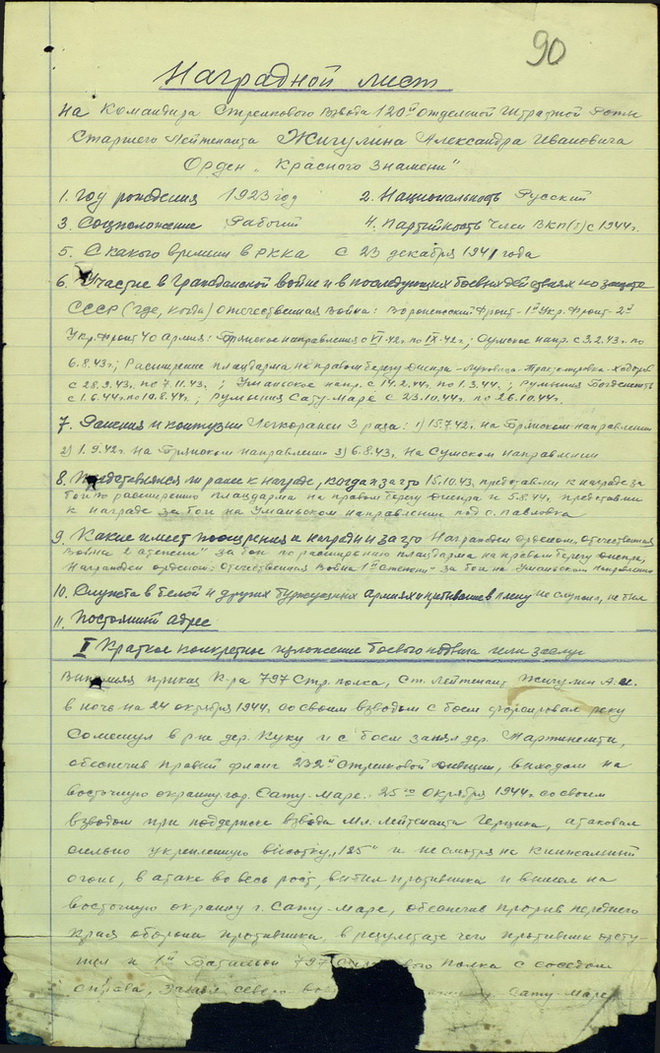 90
Наградной лист
На Командира Стрелкового Взвода 120й Отдельной Штрафной Роты
Старшего Лейтенанта Жигулина Александра Ивановича
Орден „Красного Знамени"
1. Год рождения 1923 год 2. Национальность Русский
3. Соцположение Рабочий 4. Партийность Член ВКП(б) с 1944г.
5. С какого времени в РККА с 23 декабря 1941 года
6. Участие в Гражданской войне и в последующих боевых действиях по защите
СССР (где, когда) Отечественная Война: Воронежский Фронт - 1й Укр. Фронт - 2й
Укр. Фронт 40 Армия: Брянское направление с VI-42г. по IX-42г.; Сумское напр. с 3.2.43г. по
6.8.43г.; Расширение плацдарма на правом берегу Днепра - Ходоров
с 28.9.43. по 7.11.43. ; Уманьское напр. с 14.2.44. по 1.3.44. ; Румыния
с 1.6.44г. по 19.8.44г. ; Румыния Сату-Маре с 23.10.44г. по 26.10.44г.
7. Ранения и контузии Легко ранен 3 раза: 1) 15.7.42г. на Брянском направлении
2) 1.9.42г. на Брянском направлении 3) 6.8.43г. на Сумском направлении
8. Представлялся ли ранее к награде, когда и за что 15.10.43. представлен к награде за
бои по расширению плацдарма на правом берегу Днепра и 5.8.44г. представлен
к награде за бои на Уманьском направлении под с. Павловка
9. Какие имеет поощрения и награды и за что Награжден орденом „Отечественная
Война 2 степени" за бои по расширению плацдарма на правом берегу Днепра,
Награжден орденом: Отечественная Война 1й степени" за бои на Уманьском направлении
10. Служба в белой и других буржуазных армиях и пребывание в плену не служил, не был
11. Постоянный адрес
I Краткое конкретное изложение боевого подвига или заслуг
Выполняя приказ К-ра 797 Стр. полка, Ст. Лейтенант Жигулин А.И.
в ночь на 24 октября 1944г. со своим взводом с боем форсировал реку
Сомешул в р-не дер. Куку и с боем занял дер.
обеспечив правый фланг 232й Стрелковой Дивизии, выходом на
восточную окраину гор. Сату-Маре. 25го Октября 1944г. со своим
взводом при поддержке взвода Мл. Лейтенанта Герцика, атаковал
сильно укрепленную высотку „185" и не смотря на кинжальный
огонь, в атаке во весь рост, выбил противника и вышел на
восточную окраину г. Сату-Маре, обеспечив прорыв переднего
Края обороны противника, в результате чего противник отсту-
пил и 1й Батальон 797 полка с соседом
справа, Сату-Маре